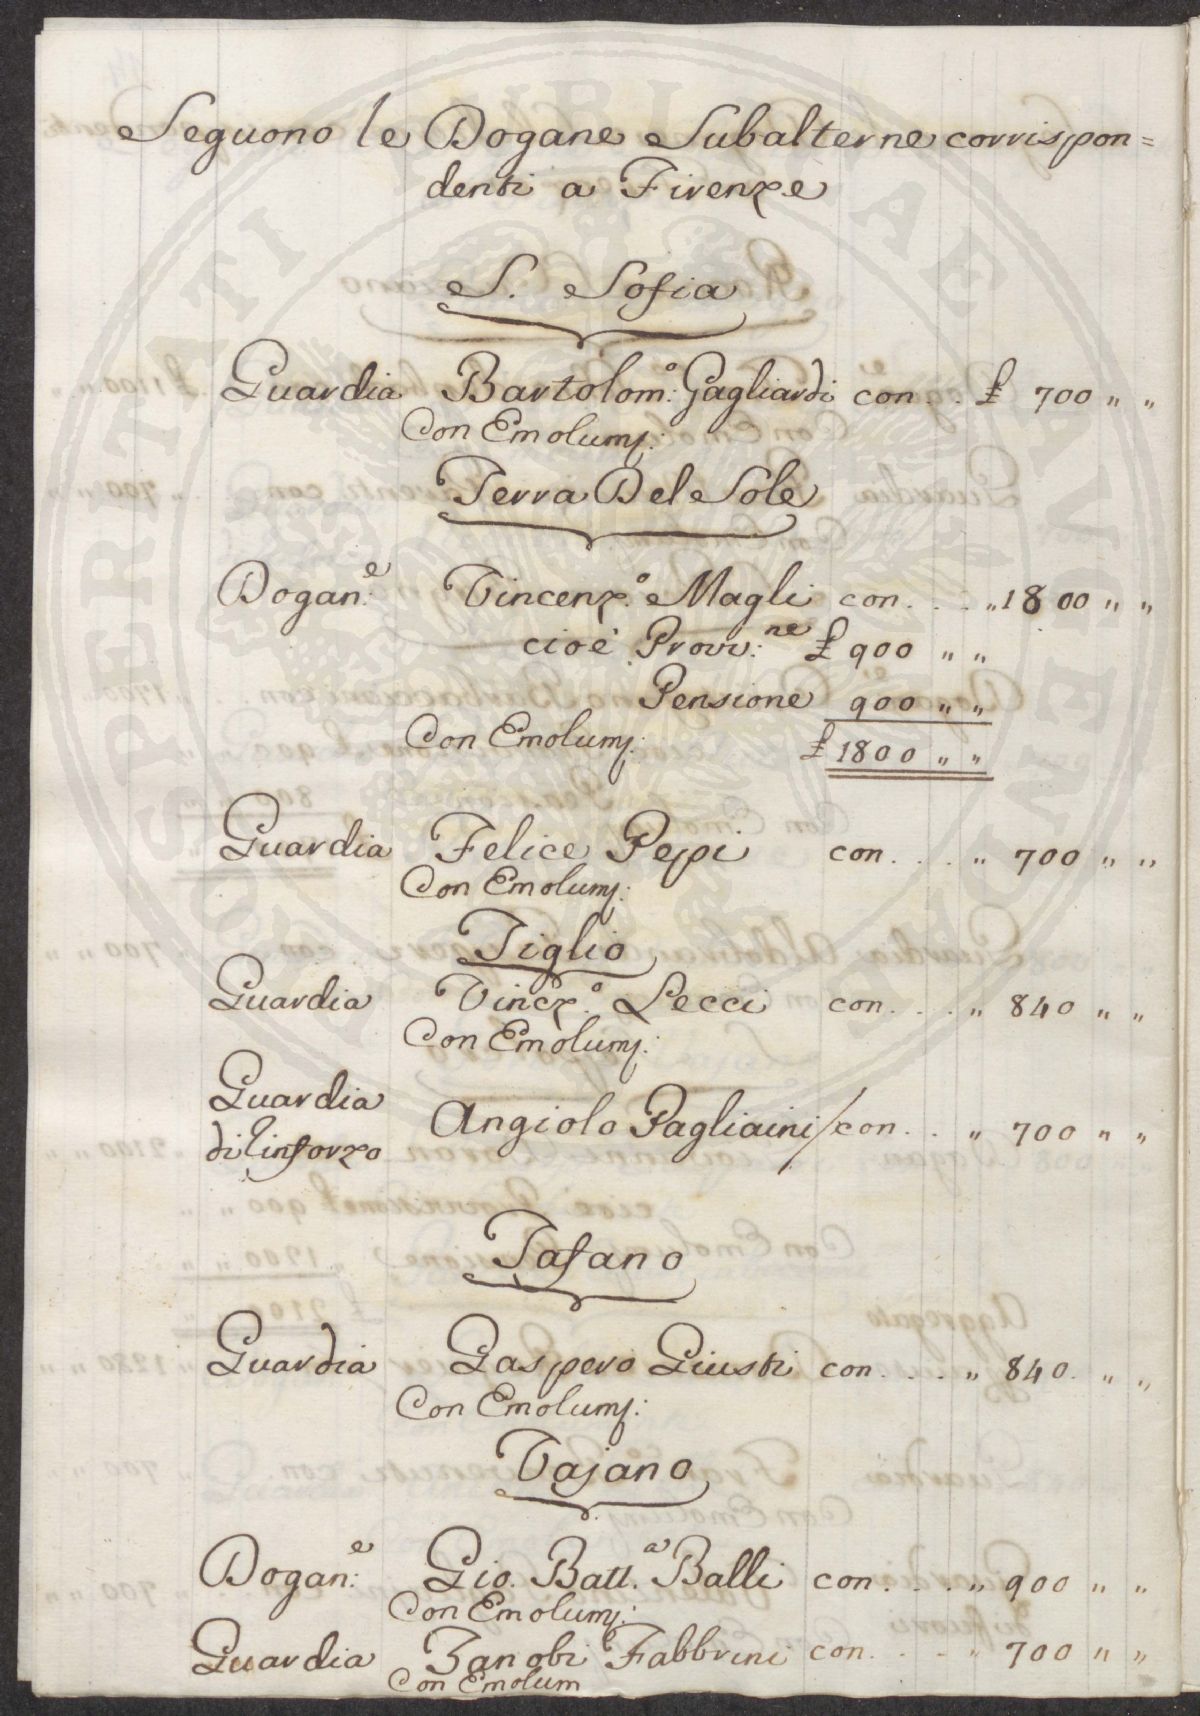 Seguono le Dogane Subalterne corrispon=
denti a Firenze
S. Sofia
Guardia Bartolom:º Gagliardi con . . £ 700 " "
Con Emolum:
Terra Del Sole
Dogan:e Vincenz:º Magli con . . . " 1800 " "
cioè Provv:ne £ 900 " "
Pensione 900 " "
Con Emolum: £ 1800 " "
Guardia Felice Pepi con . . . " 700 " "
Con Emolum:
Tiglio
Guardia Vincz:º Lecci con . . . " 840 " "
Con Emolum:
Guardia
di Rinforzo Angiolo Pagliaini / con . . " 700 " "
Tafano
Guardia Gaspero Giusti con . . . " 840 . " "
Con Emolum:
Vajano
Dogan:e Gio. Batt.a Balli con . . . " 900 " "
Con Emolum:
Guardia Zanobi Fabbrini con . . . " 700 " "
Con Emolum